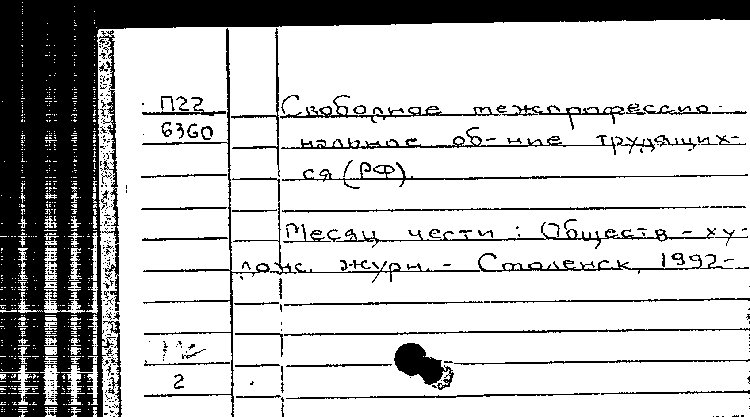 П22
6360
Свободное межпрофессио-
нальное об-ние трудящих-
ся (РФ).
Месяц чести : Обществ - ху-
дож. журн. - Смоленск, 1992-
2